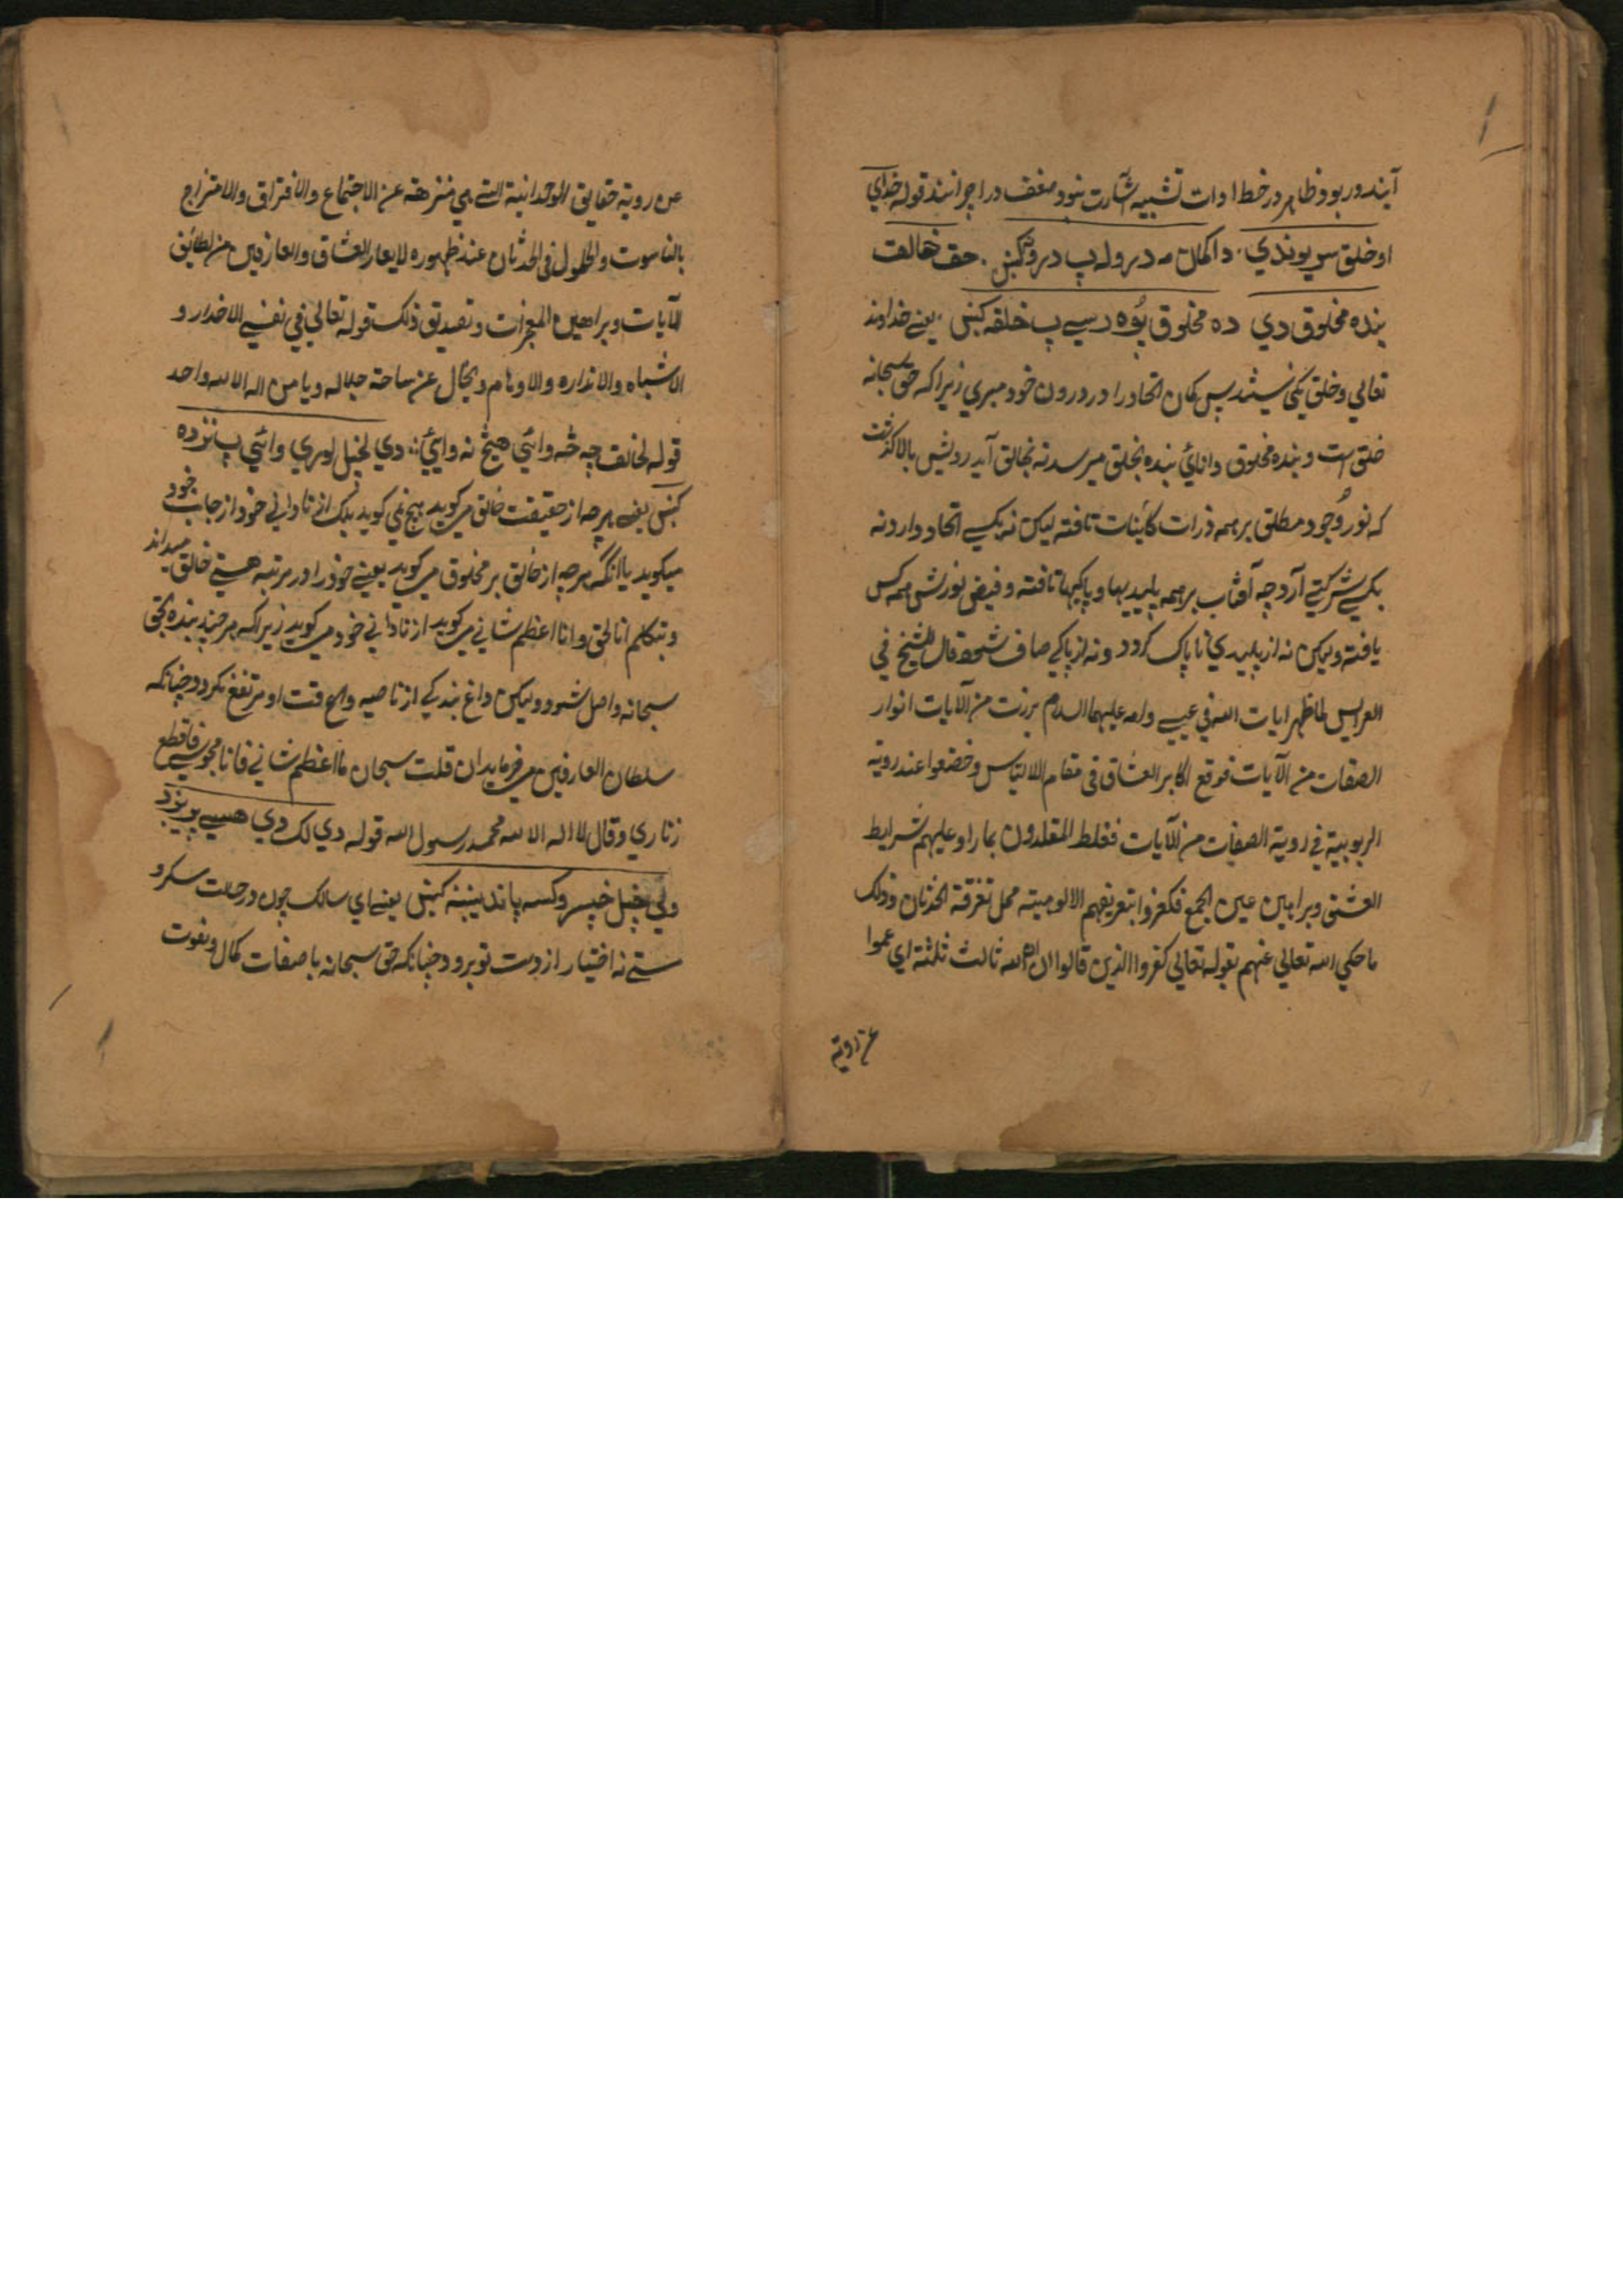 آیند دربود و ظاهر در خط ادات تشبیه اشارت بنود منفف در اجرا نبند قوله خدای
او خلق سره یو ندي، دا کمان مه دروله پ دروکښ، حق خالق
بنده مخلوق دي ده مخلوق پوه رسي پ خلقه کښ، یعنی خداوند
تعالی و خلق یکی نیستند پس کمان اتحاد را در درون خود مبری زیرا که حق سبحانه
خلق است و بنده مخلوق دانائی بنده بخلق میرسد نه بخالق آید رویش بالا گذشت
که نور وجود مطلق بر همه ذرات کاینات تافته لیکن نه بکسی اتحاد دارد نه
بکسی شرکتی آرد چه آفتاب بر همه پلیدیها و پاکیها تافته و فیض نورش همه کس
یافته ولیکن نه از پلیدی ناپاک کردد و نه از پاکی صاف شود قال الشیخ فی
العرایس لما ظهر ایات الله فی عیسی و امه علیهما السلام برزت من الآیات انوار
الصفات من الآیات فوقع اکابر العشاق فی مقام الالتباس و خضعوا عند رویة
الربوبیة فی رویة الصفات من الآیات فغلط المقلدون بما راو علیهم شرایط
العشق و براهین عین الجمع فکفروا بتعریفهم الالوهیته محل تفرقة الحدثان و ذلک
ما حکی الله تعالی عنهم بقوله تعالی کفروا الذین قالوا ان الله ثالث ثلثة ای عموا
عن رویة
عن رویة حقایق الوحدانیة التی هی منزهة عن الاجتماع والافتراق والامتزاج
بالناسوت والحلول فی الحدثان عند ظهوره لابصار العشاق والعارفین من لطایف
الآیات و براهین المعجزات و تصدیق ذلک قوله تعالی فی نفی الاضداد و
الاشباه والانداره والاوهام و بحال عن ساحة جلاله و ما من اله الا الله واحد
قوله لخالق چه څه وائي هیڅ نه وائي، دي لخپل لوري وائي پ نزده
کښ یعنی هرچه از حقیقت خالق میکوید هیچ نمی کوید بلک از نادانی خود از جانب خود
میکوید یا آنگه هرچه از خالق بر مخلوق میکوید یعنی خود را در مرتبه هستی خالق میداند
و بتکلم انا الحق و انا اعظم شانی میکوید از نادانی خود میکوید زیرا که هر چند بنده بحق
سبحانه واصل شود ولیکن داغ بندکی از ناصیه وقت او مرتفع نکردد چنانکه
سلطان العارفین میفرماید ان قلت سبحان ما اعظم شانی فانا مجوسی فاقطع
زناری و قال لا اله الا الله محمد رسول الله قوله دي لک دي هسي پرېږد
ولي خپل خپسر وکسه پاند یښنه کښ یعنی ای سالک چون در حالت سکر و
مستی نه اختیار از دست تو برود چنانکه حق سبحانه با صفات کمال و نعوت